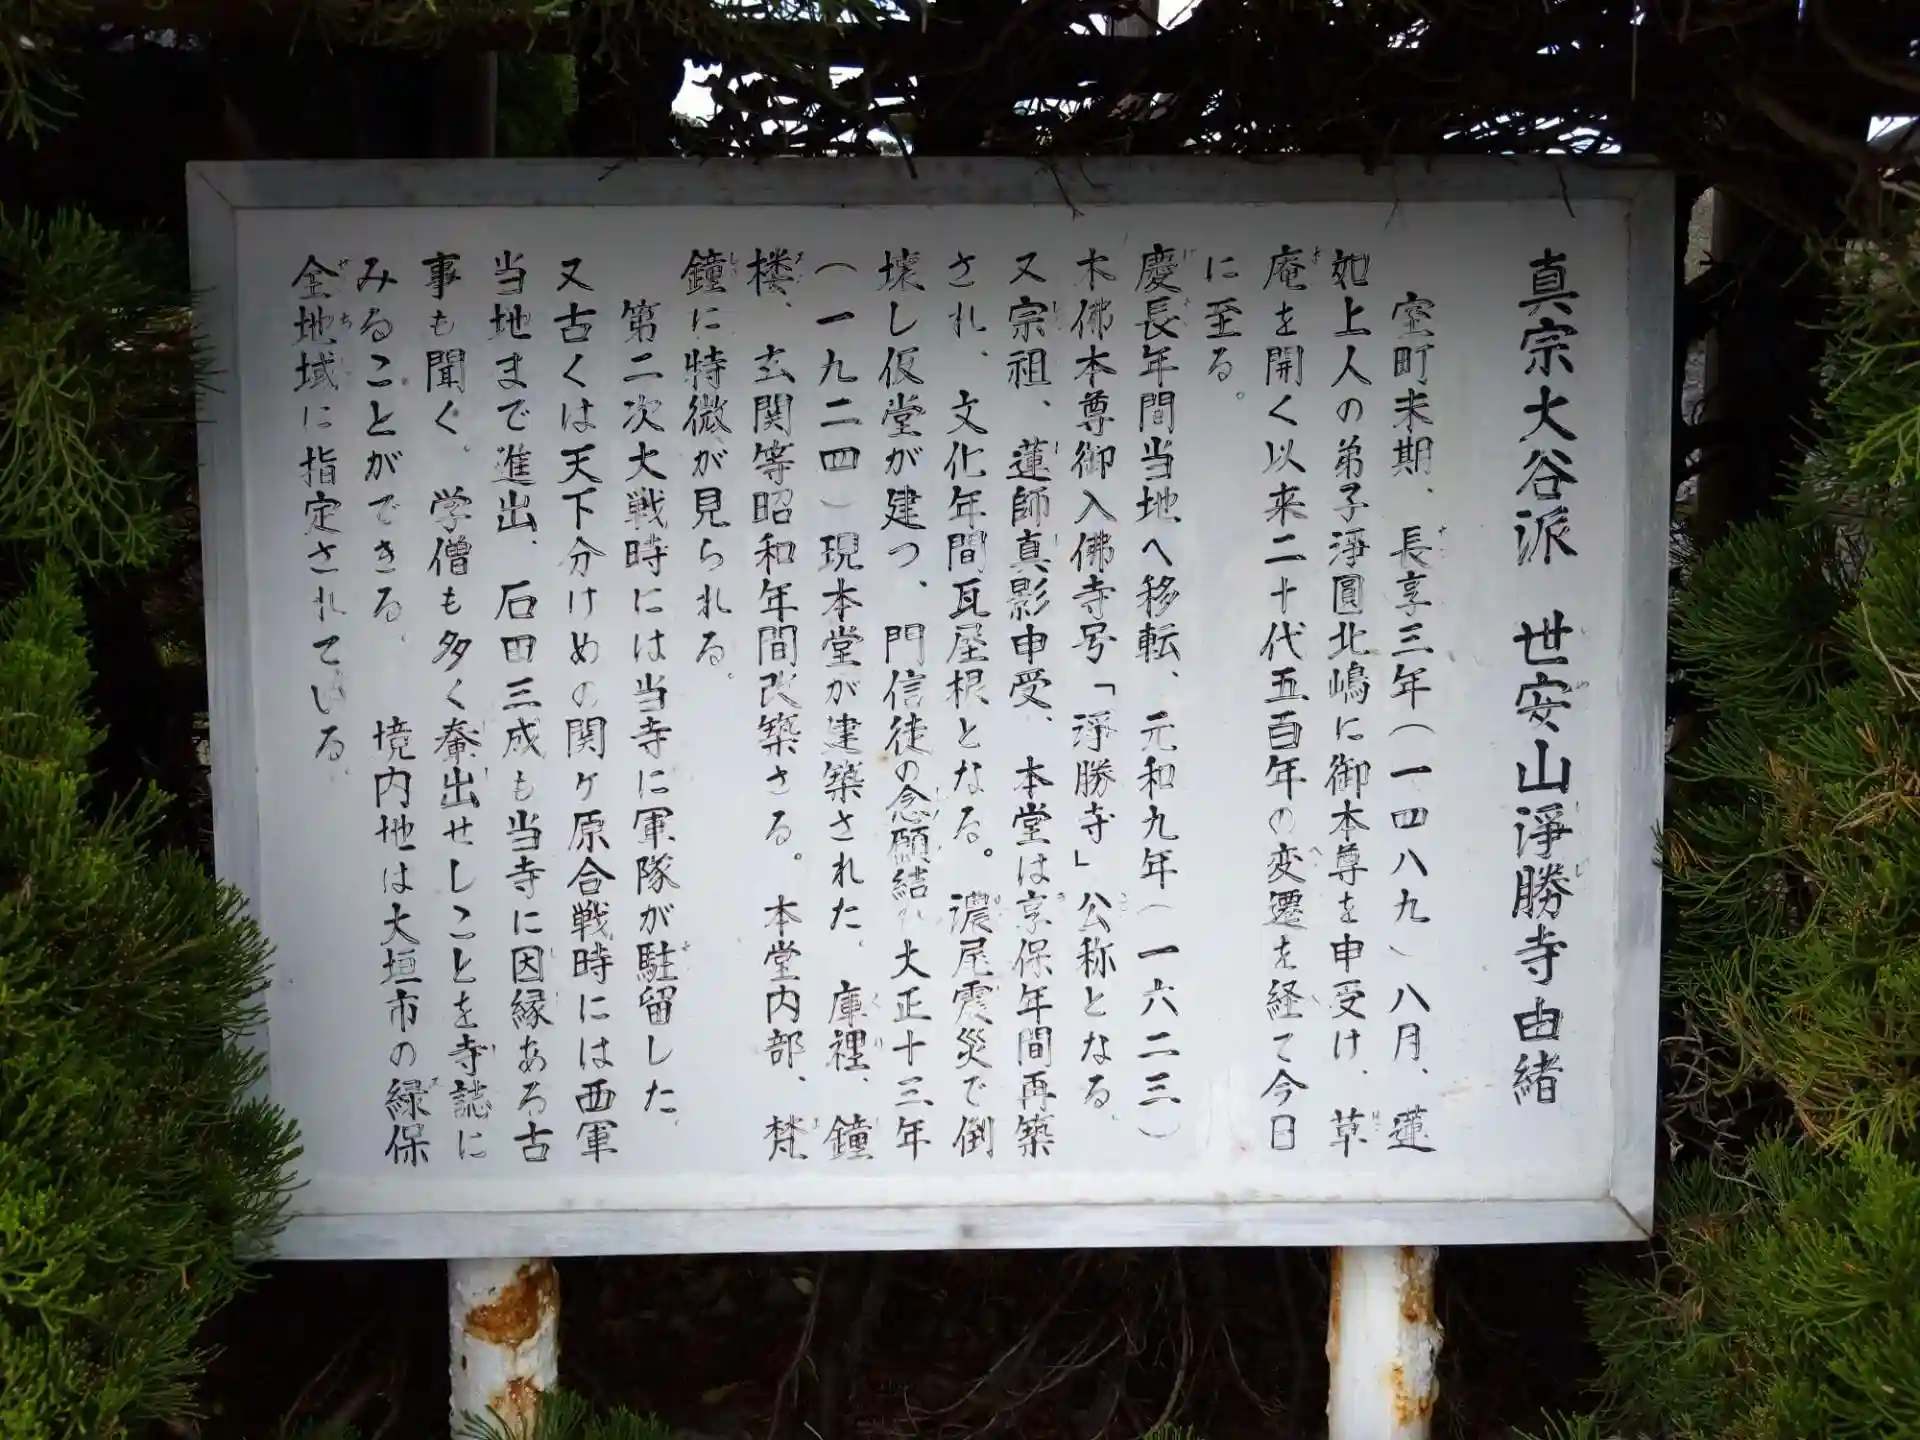 真宗大谷派 世安山淨勝寺由緒
室町末期、長享三年(一四八九)八月、蓮
如上人の弟子淨圓北嶋に御本尊を申受け、草
庵を開く以来二十代五百年の変遷を経て今日
に至る。
慶長年間当地へ移転、元和九年(一六二三)
木佛本尊御入佛寺号「淨勝寺」公称となる。
又宗祖、蓮師真影申受、本堂は享保年間再築
され、文化年間瓦屋根となる。濃尾震災で倒
壊し仮堂が建つ、門信徒の念願結れ大正十三年
(一九二四)現本堂が建築された。庫裡、鐘
楼、玄関等昭和年間改築さる。本堂内部、梵
鐘に特微が見られる。
第二次大戦時には当寺に軍隊が駐留した。
又古くは天下分けめの関ヶ原合戦時には西軍
当地まで進出、石田三成も当寺に因縁ある古
事も聞く。学僧も多く輩出せしことを寺誌に
みることができる。 境内地は大垣市の緑保
全地域に指定されている。